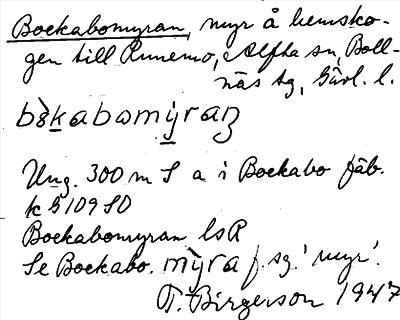 Bockabomyran, myr å hemsko-
gen till Runemo, Alfta sn, Boll-
näs tg, Gävl. l.
bòkabomỳran
Ung. 300 m S a i Bockabo fäb.
k G 109 SO
Bockabomyran lsR
Se Bockabo. mỳra f. sg. 'myr'.
T. Birgerson 1947